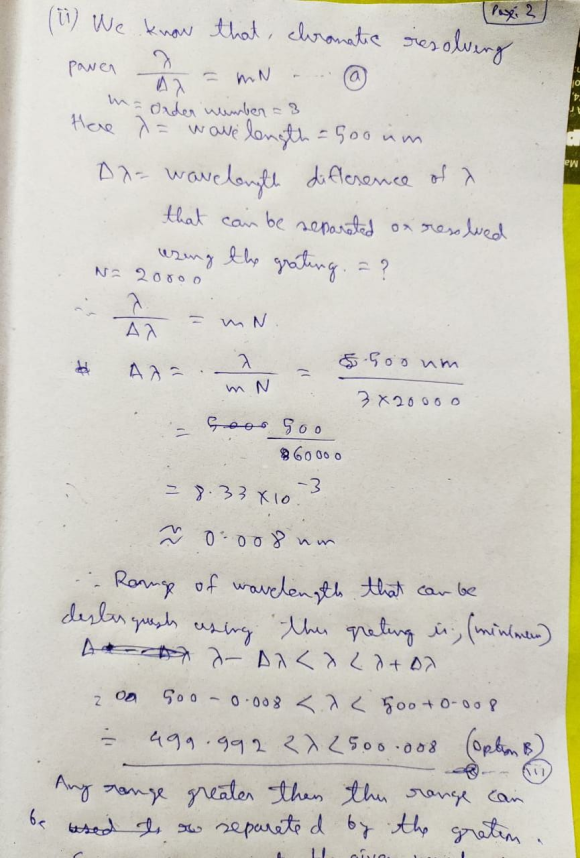 Page: 2
(ii) We know that, chromatic resolving
power λ/Δλ = mN ---- ⓐ
m = order number = 3
Here λ = wave length = 500 nm
Δλ = wavelength difference of λ
that can be separated or resolved
using the grating. = ?
N = 20000
∴ λ/Δλ = mN.
Δλ = λ/mN = 500 nm/3×20000
= 500/60000
= 8.33 ×10⁻³
≈ 0.008 nm
∴ Range of wavelength that can be
distinguish using this grating is, (minimum)
λ - Δλ < λ < λ + Δλ
or 500 - 0.008 < λ < 500 + 0.008
= 499.992 < λ < 500.008 (option B)
(iii)
Any range greater than this range can
be separated by the grating.